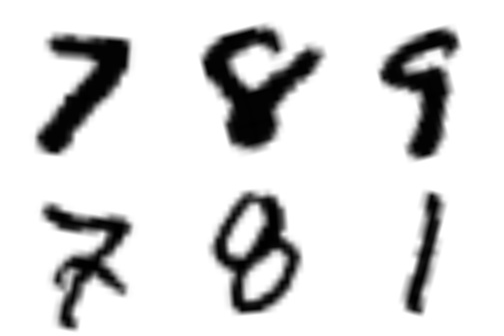 7 8 9
7 8 1